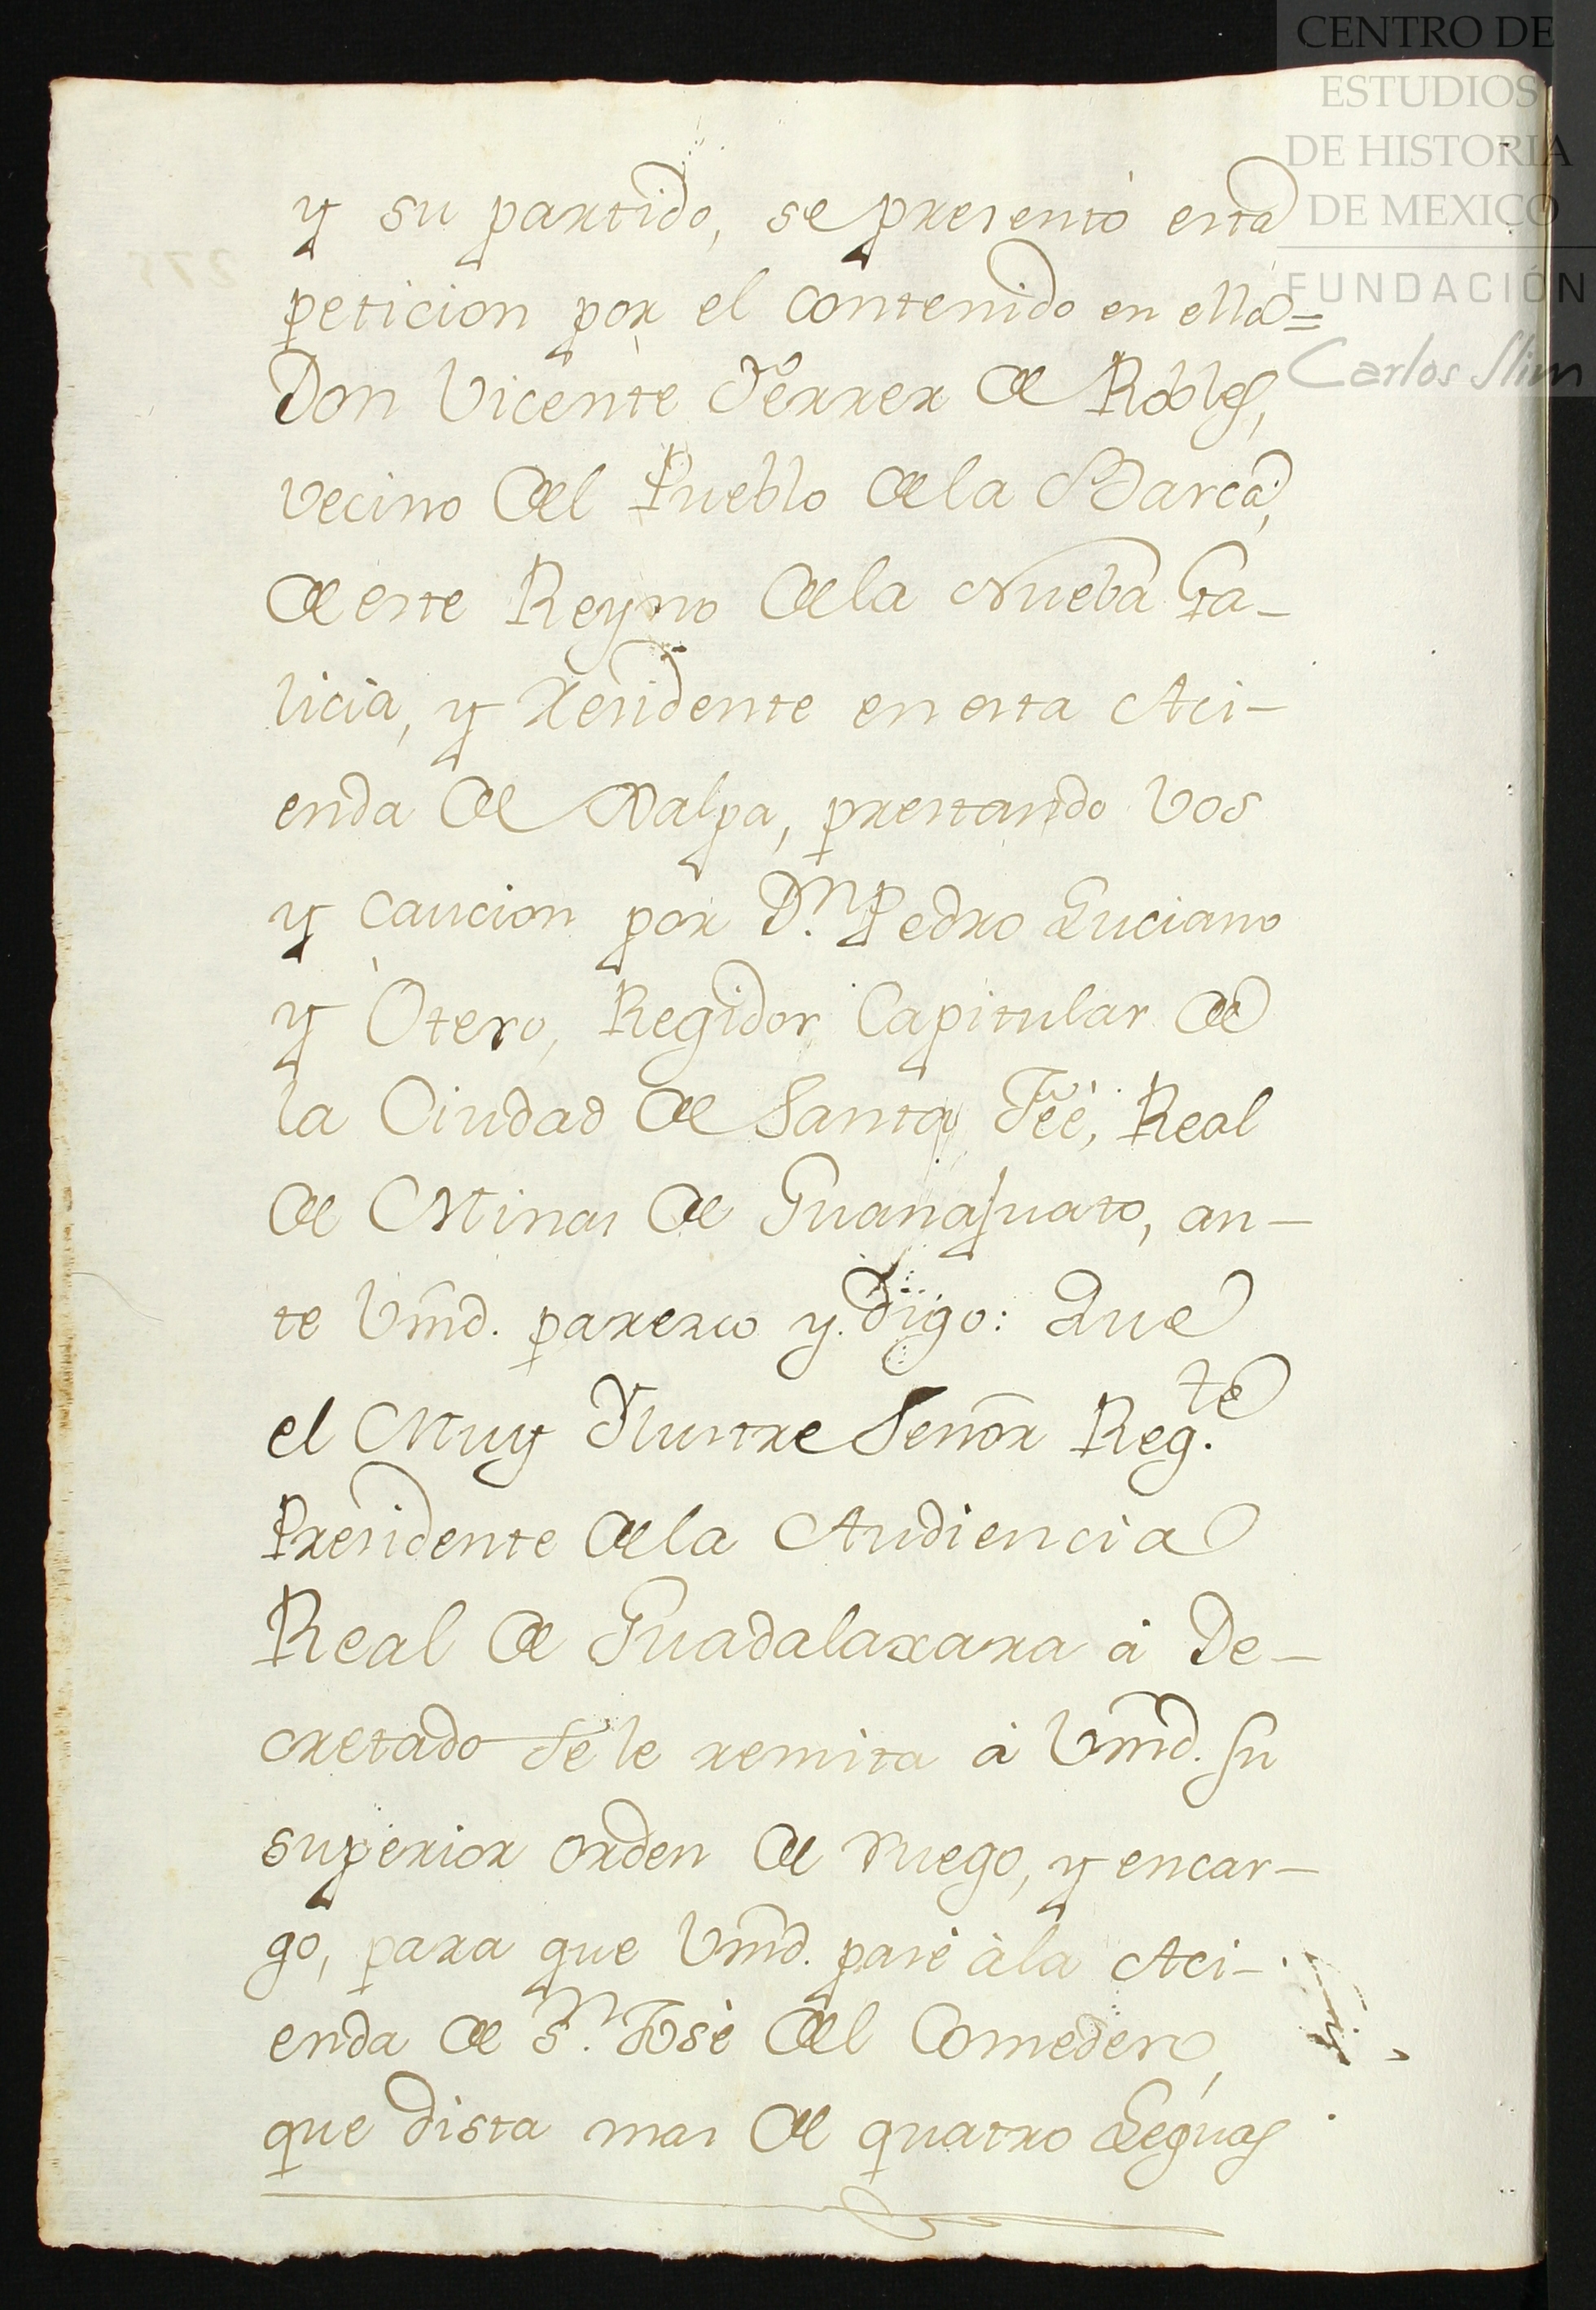 CENTRO DE
ESTUDIOS
DE HISTORIA
DE MEXICO
FUNDACIÓN
Carlos Slim
y su partido, se presentó esta
peticion por el contenido en ella=
Don Vicente Ferrer de Robles,
vecino del Pueblo de la Barca,
de este Reyno de la Nueba Ga-
licia, y residente en esta Aci-
enda de Xalpa, prestando Vos
y caucion por Dn. Pedro Luciano
y Otero, Regidor Capitular de
la Ciudad de Santa Feé, Real
de Minas de Guanajuato, an-
te Vmd. paresco y digo: Que
el Muy Ylustre Señor Regte.
Presidente de la Audiencia
Real de Guadalaxara á De-
cretado se le remita á Vmd. su
superior orden de ruego, y encar-
go, para que Vmd. pase à la Aci-
enda de Sn. José del Comedero,
que dista mas de quatro Leguas